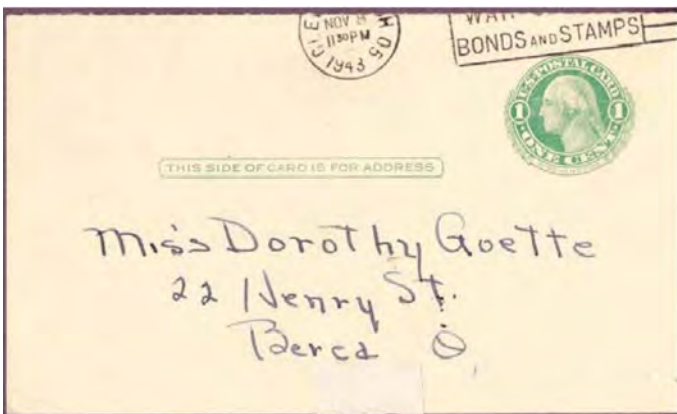 NOV 8
11 30 PM
1943
WAR
BONDS AND STAMPS
U.S. POSTAL CARD
1 1
ONE CENT
THIS SIDE OF CARD IS FOR ADDRESS
Miss Dorothy Goette
22 Henry St.
Berea O